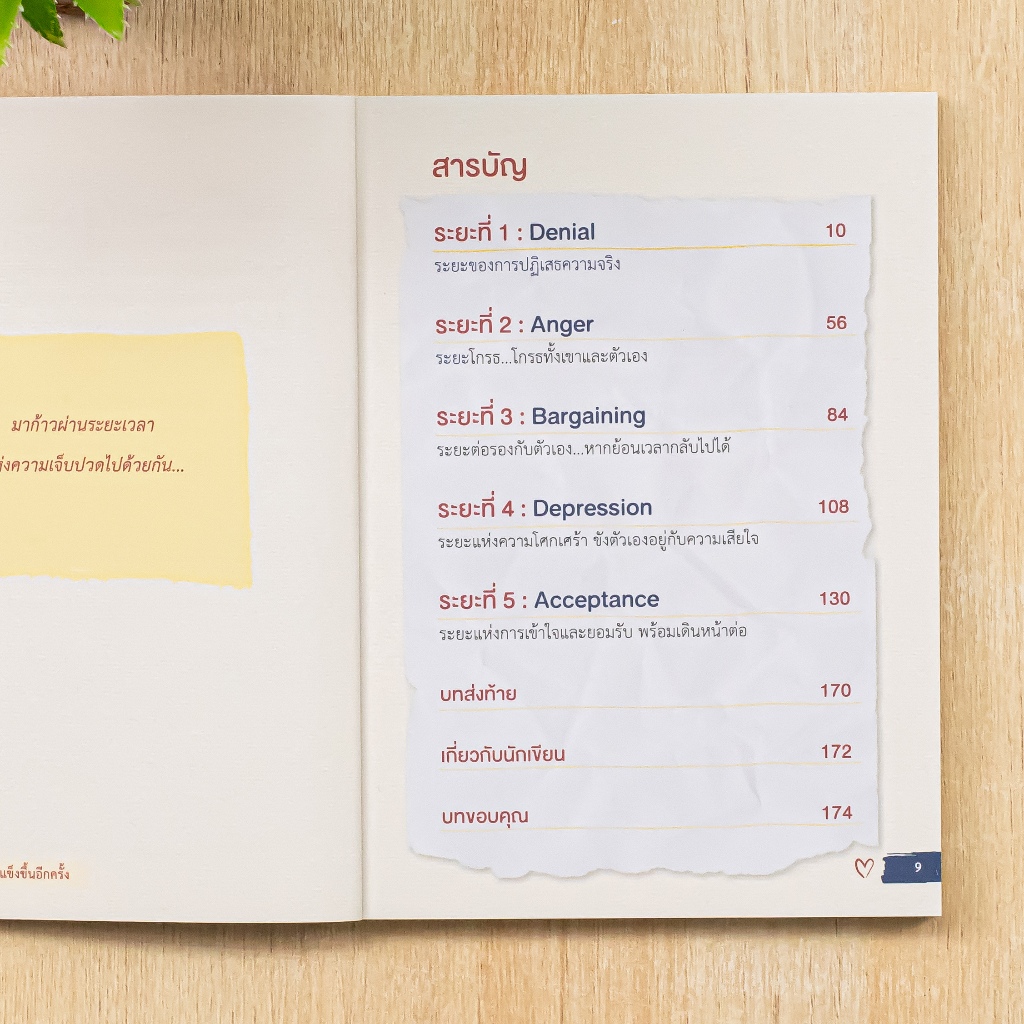 มาก้าวผ่านระยะเวลา
ความเจ็บปวดไปด้วยกัน...
แข็งขึ้นอีกครั้ง
สารบัญ
ระยะที่ 1 : Denial 10
ระยะของการปฏิเสธความจริง
ระยะที่ 2 : Anger 56
ระยะโกรธ...โกรธทั้งเขาและตัวเอง
ระยะที่ 3 : Bargaining 84
ระยะต่อรองกับตัวเอง...หากย้อนเวลากลับไปได้
ระยะที่ 4 : Depression 108
ระยะแห่งความโศกเศร้า ขังตัวเองอยู่กับความเสียใจ
ระยะที่ 5 : Acceptance 130
ระยะแห่งการเข้าใจและยอมรับ พร้อมเดินหน้าต่อ
บทส่งท้าย 170
เกี่ยวกับนักเขียน 172
บทขอบคุณ 174
9